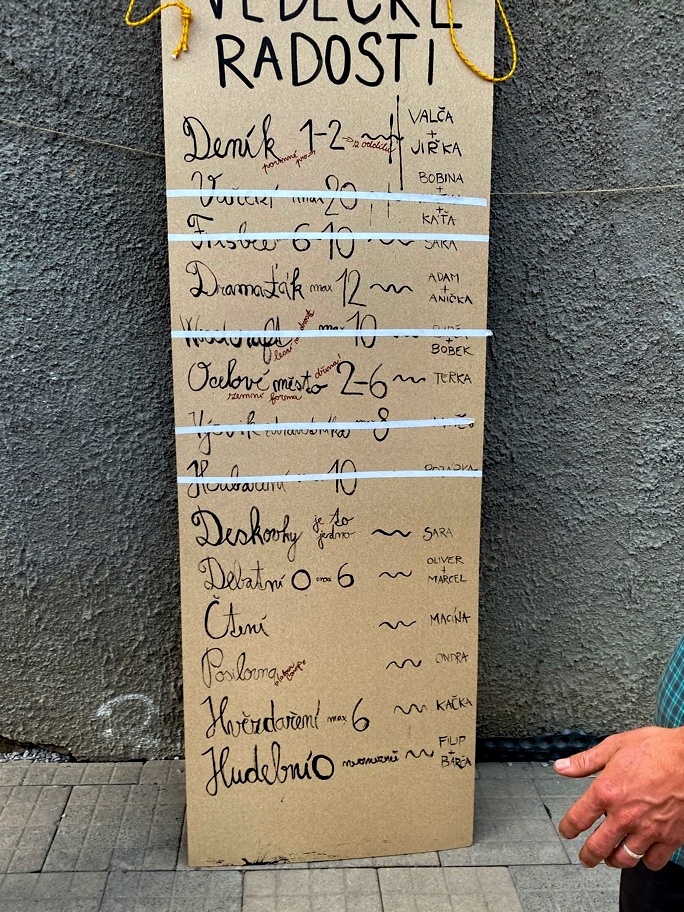 VĚDECKÉ
RADOSTI
Deník 1-2 VALČA
+
JIŘKA
povinné pro z oddílu
Vaření max 20 BOBINA
+
KAŤA
Frisbee 6-10 SÁRA
Dramaťák max 12 ADAM
+
ANIČKA
Woodcraft max 10
+
BOBEK
lesní moudrost
Ocelové město 2-6 TERKA
zemní forma
8
10
Deskovky je to jedno SÁRA
Debatní O max 6 OLIVER
+
MARCEL
Čtení MACINA
Posilovna ONDRA
Hvězdaření max 6 KAČKA
Hudební O neomezeně FILIP
+
BÁRA